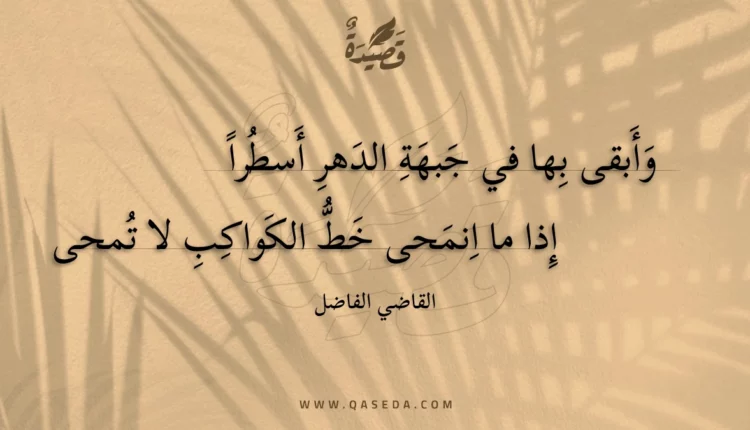 قَصِيدَةٌ
وَأَبقى بِها في جَبهَةِ الدَهرِ أَسطُراً
إِذا ما اِنمَحى خَطُّ الكَواكِبِ لا تُمحى
القاضي الفاضل
WWW.QASEDA.COM